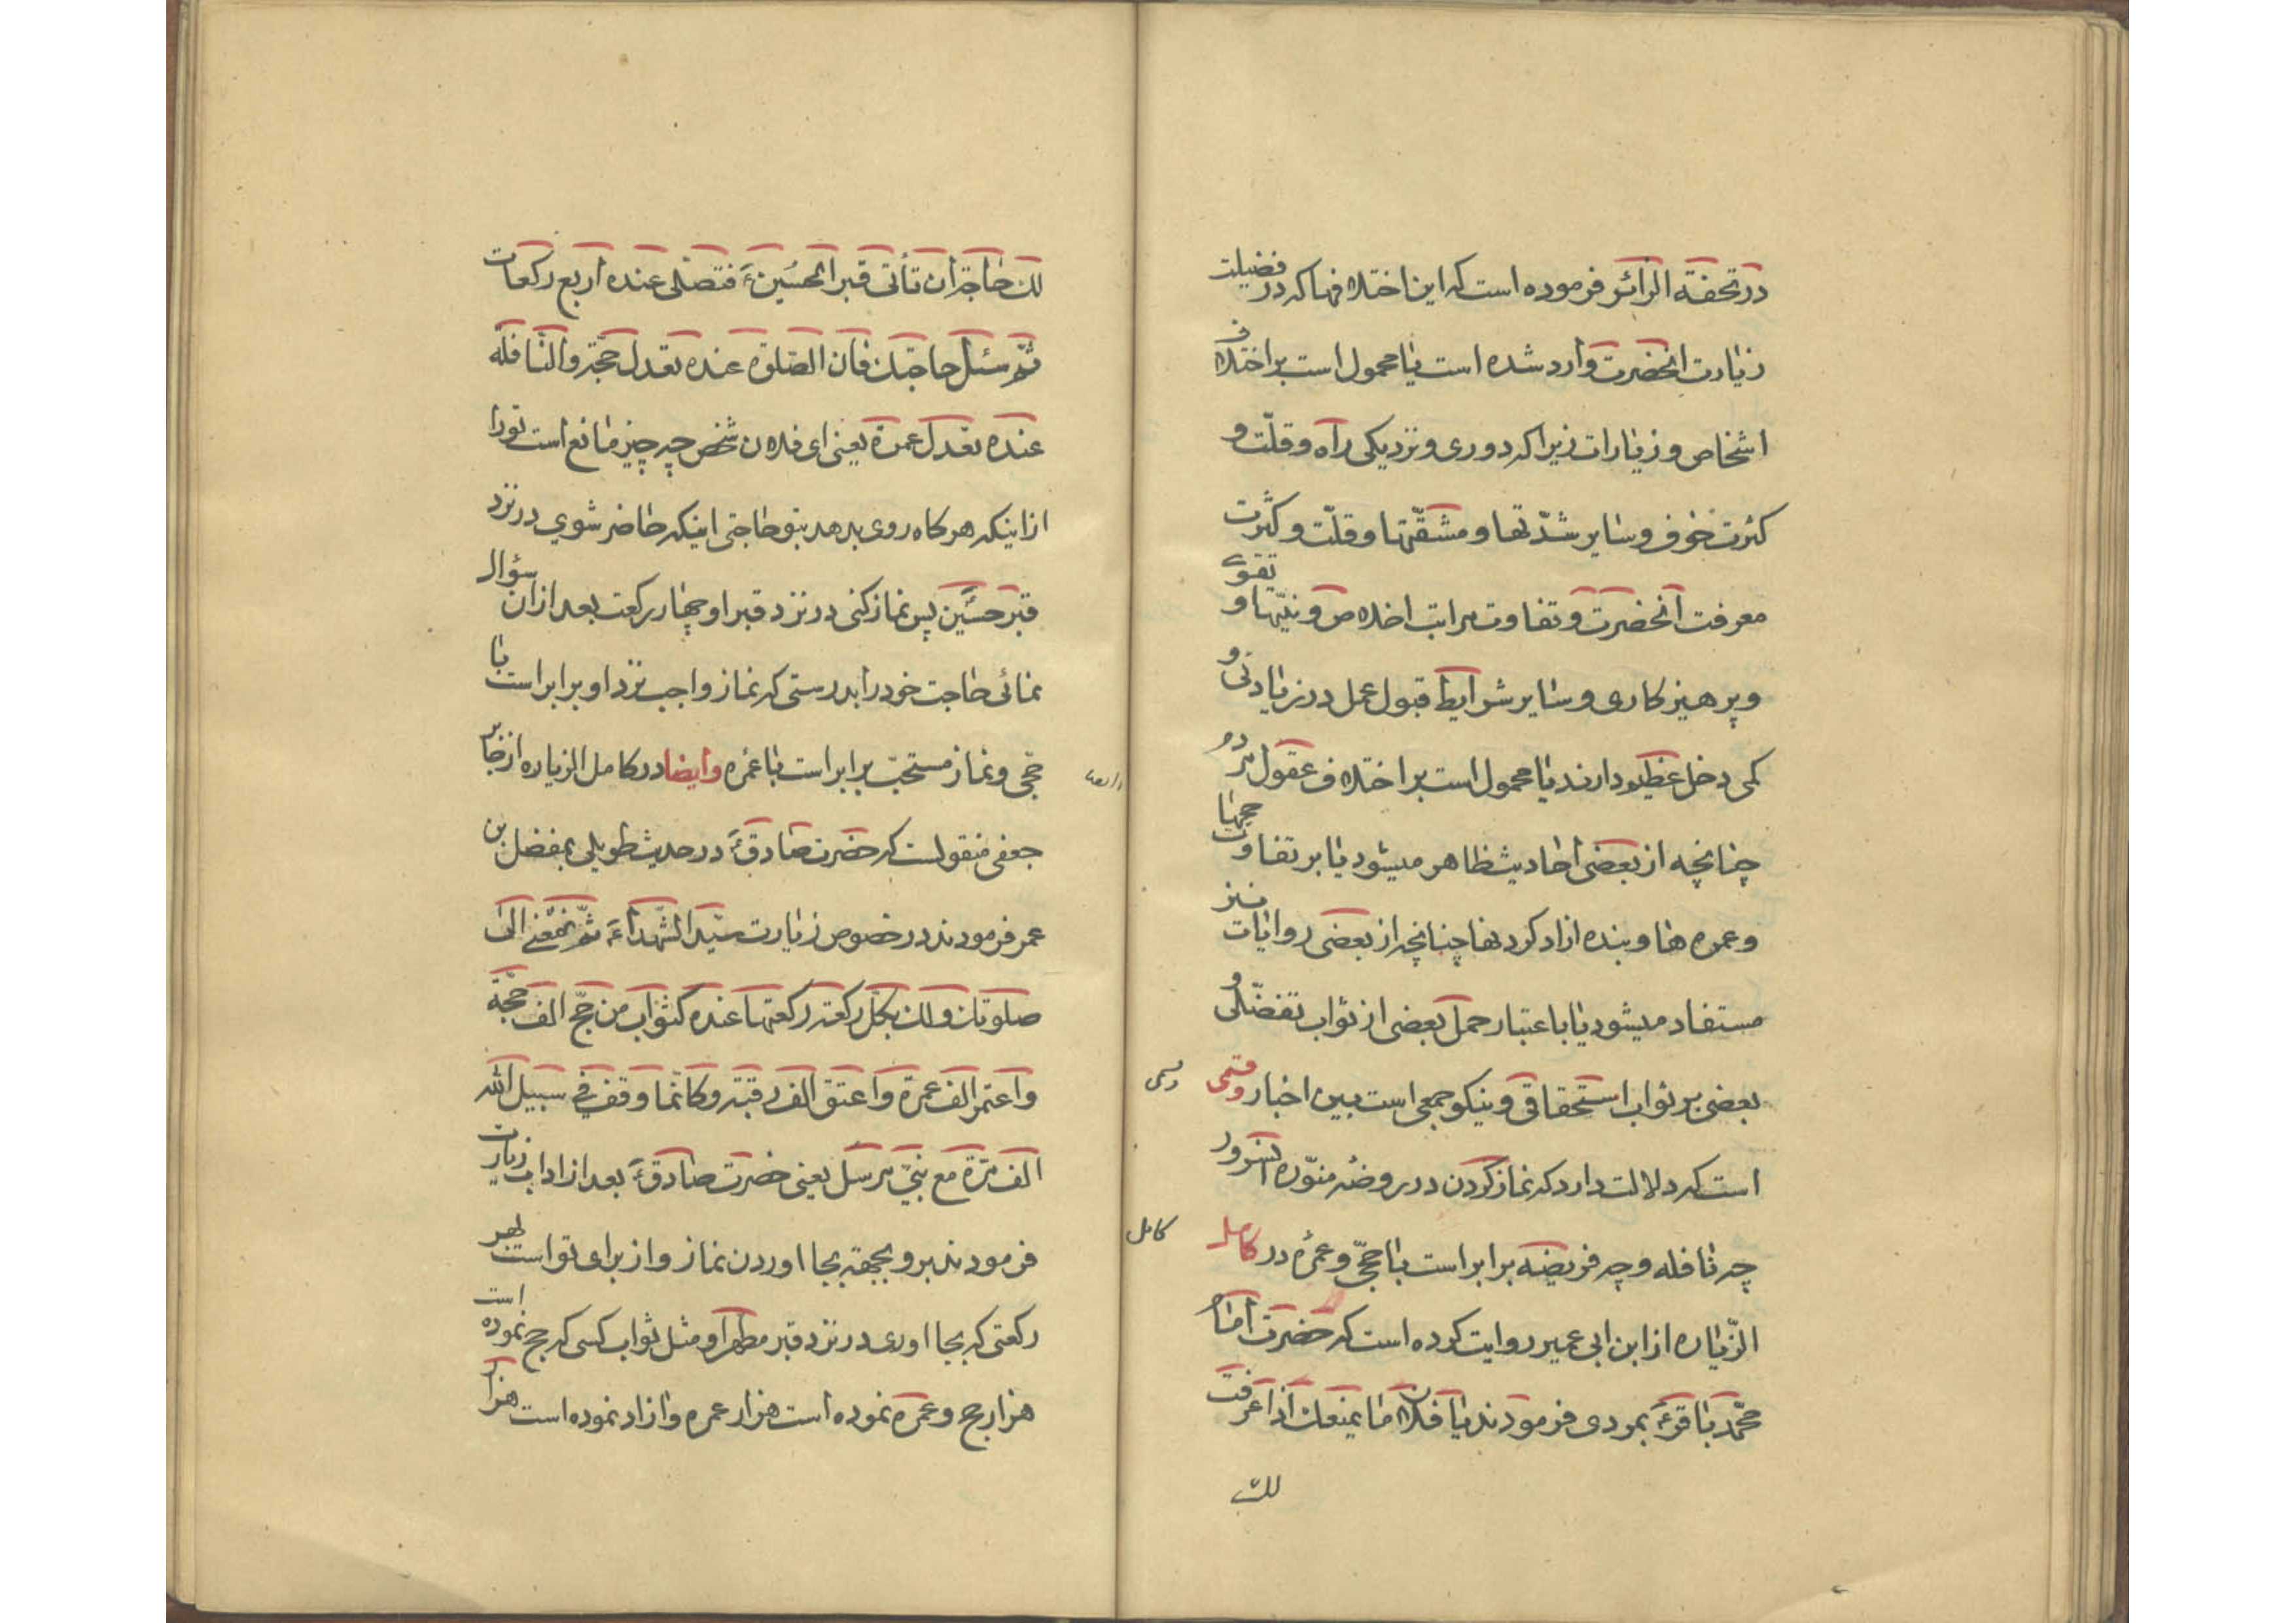 در تحفة الزائر فرموده است که این اختلافها که در فضیلت
زیارت انحضرت وارد شده است یا محمول است بر اختلاف
اشخاص و زیارات زیرا که دوری و نزدیکی راه و قلّت و
کثرت خوف و سایر شدّتها و مشقّتها و قلّت و کثرت
معرفت آنحضرت و تفاوت مراتب اخلاص و نیّتها و تقوی
و پرهیزکاری و سایر شرایط قبول عمل در زیادتی و
کمی دخل عظیم دارند یا محمول است بر اختلاف عقول مردم
چنانچه از بعضی احادیث ظاهر میشود یا بر تفاوت حجها
و عمره ها و بنده ازاد کردنها چنانچه از بعضی روایات نیز
مستفاد میشود یا باعتبار حمل بعضی از ثواب تفضّلی و
بعضی بر ثواب استحقاقی و نیکو جمعی است بین اخبار و قسمی
است که دلالت دارد که نماز کردن در روضه منوّره انسرور
چه نافله و چه فریضه برابر است با حجّی و عمرهٔ در کامل
کامل
الزّیاره از ابن ابی عمیر روایت کرده است که حضرت امام
محمّد باقرؑ بمردی فرمودند یا فلان ما یمنعك اذا عرفت
لك
لك حاجة ان تأتی قبر الحسینؑ فتصلی عنده اربع رکعات
ثم سئل حاجتك فان الصلوة عنده تعدل حجّة و النّافلة
عنده تعدل عمرة یعنی ای فلان شخص چه چیز مانع است تورا
از اینکه هرکاه روی بدهد بتو حاجتی اینکه حاضر شوی در نزد
قبر حسینؑ پس نماز کنی در نزد قبر او چهار رکعت بعد از ان سؤال
نمائی حاجت خود را بدرستی که نماز واجب نزد او برابر است با
حجّی و نماز مستحبّ برابر است با عمره وایضا در کامل الزیاره از جابر
جعفی منقولست که حضرت صادقؑ در حدیث طویلی بمفضل بن
عمر فرمودند در خصوص زیارت سیّد الشّهداءؑ ثمّ تمضی الی
صلوتك و لك بکلّ رکعة رکعتها عنده کثواب من حجّ الف حجّة
و اعتمر الف عمرة و اعتق الف رقبة و کانّما وقف فی سبیل الله
الف مرّة مع نبیّ مرسل یعنی حضرت صادقؑ بعد از اداب زیارت
فرمودند برو بجهة بجا اوردن نماز و از برای تو است بهر
رکعتی که بجا اوری در نزد قبر مطهر او مثل ثواب کسی که حج نموده است
هزار حج و عمره نموده است هزار عمره و ازاد نموده است هزار